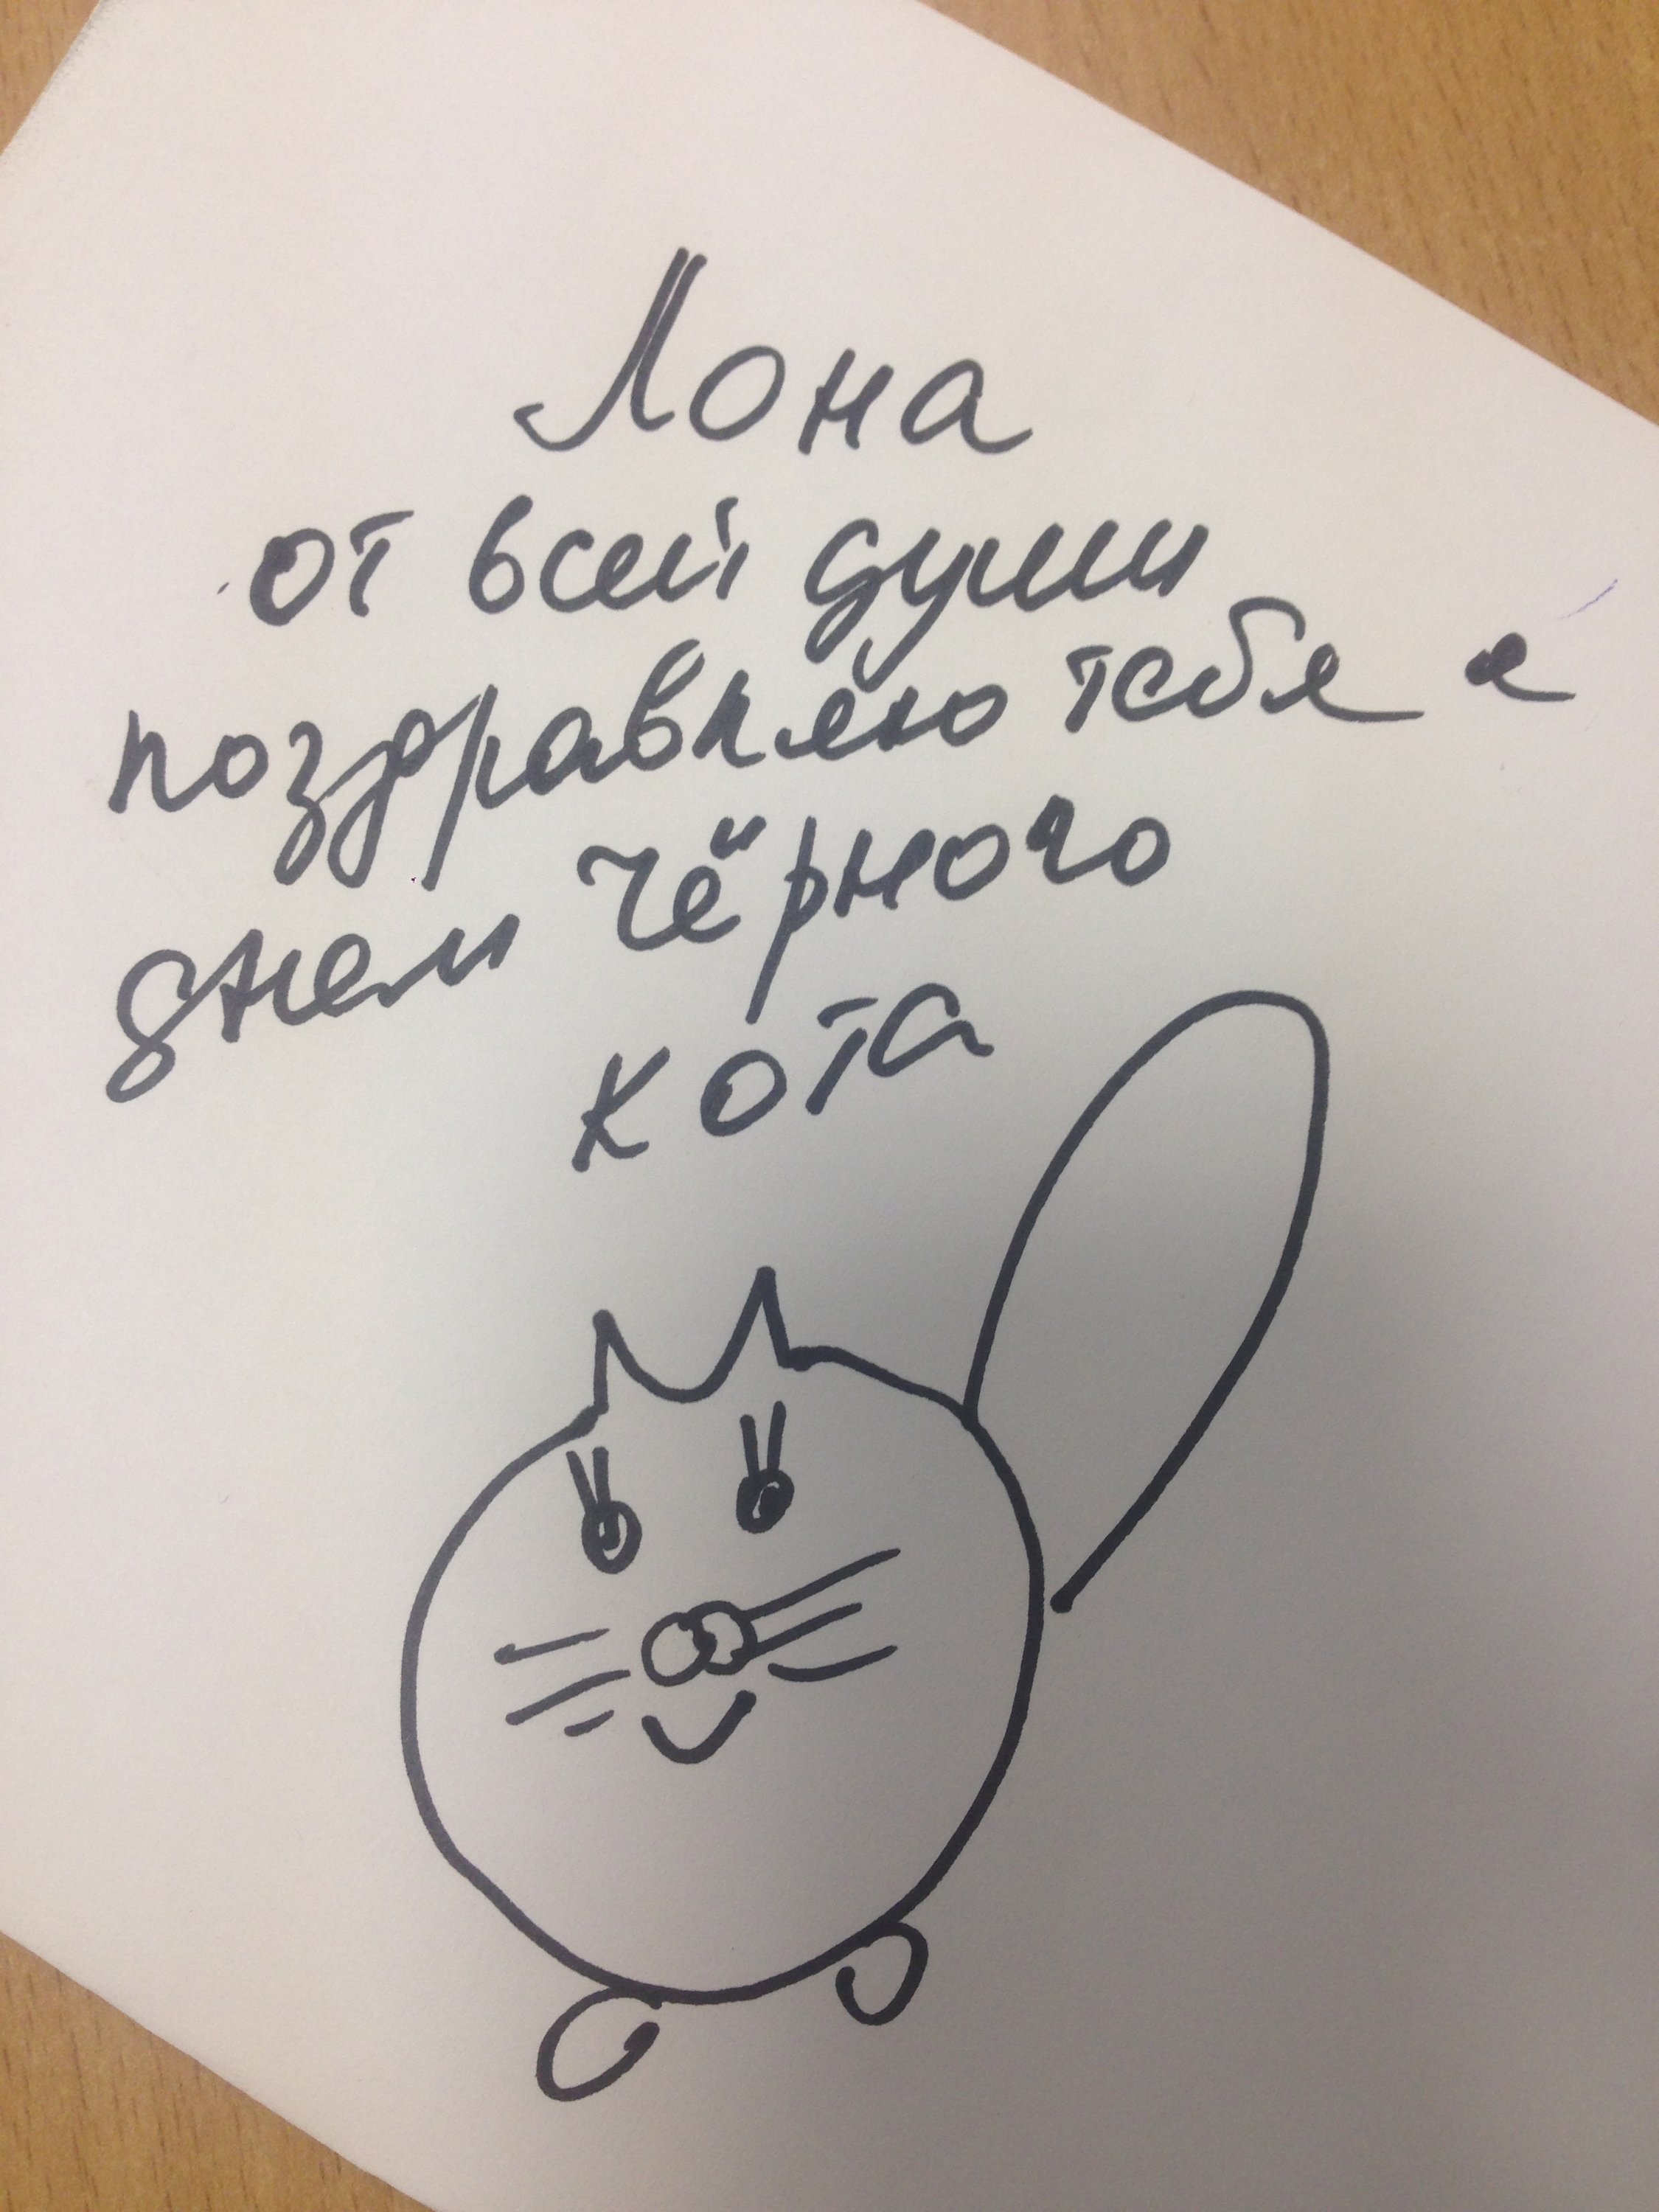 Лона
от всей души
поздравляю тебя с
днем чёрного
кота